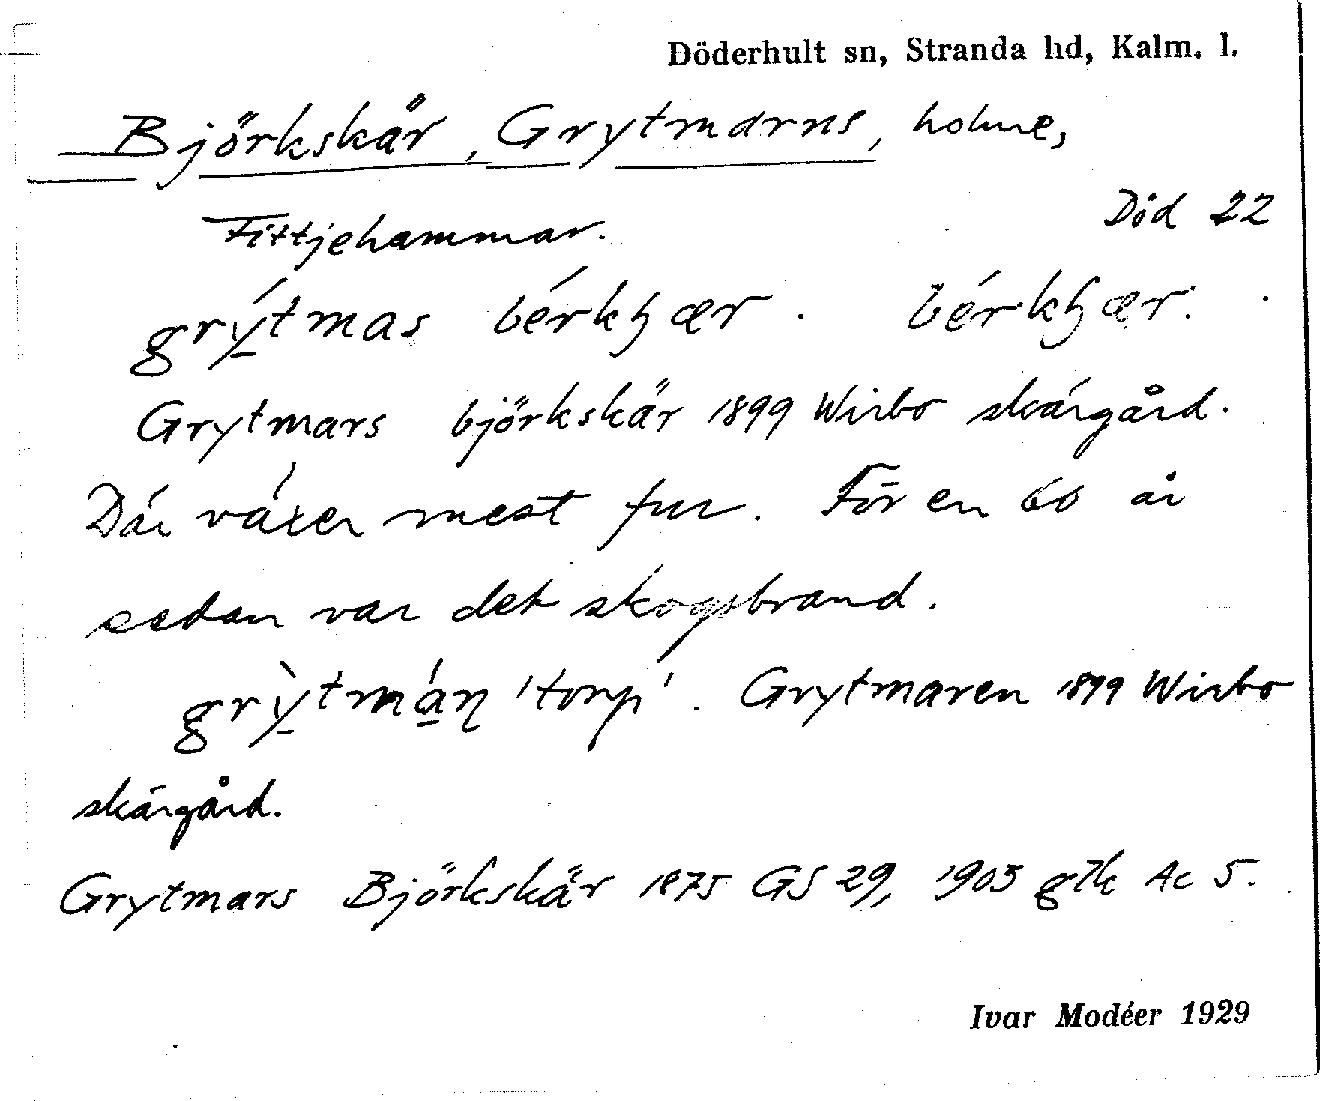 Döderhult sn, Stranda hd, Kalm. l.
Björkskär, Grytmarns, holme,
Fittjehammar. Död 22
grýtmas bérkꜧær. bérkꜧær.
Grytmars björkskär 1899 Wirbo skärgård.
Där växer mest fur. För en 60 år
sedan var det skogsbrand.
grỳtmáη 'torp'. Grytmaren 1899 Wirbo
skärgård.
Grytmars Björkskär 1875 GS 29, 1903 gtk Ac 5.
Ivar Modéer 1929